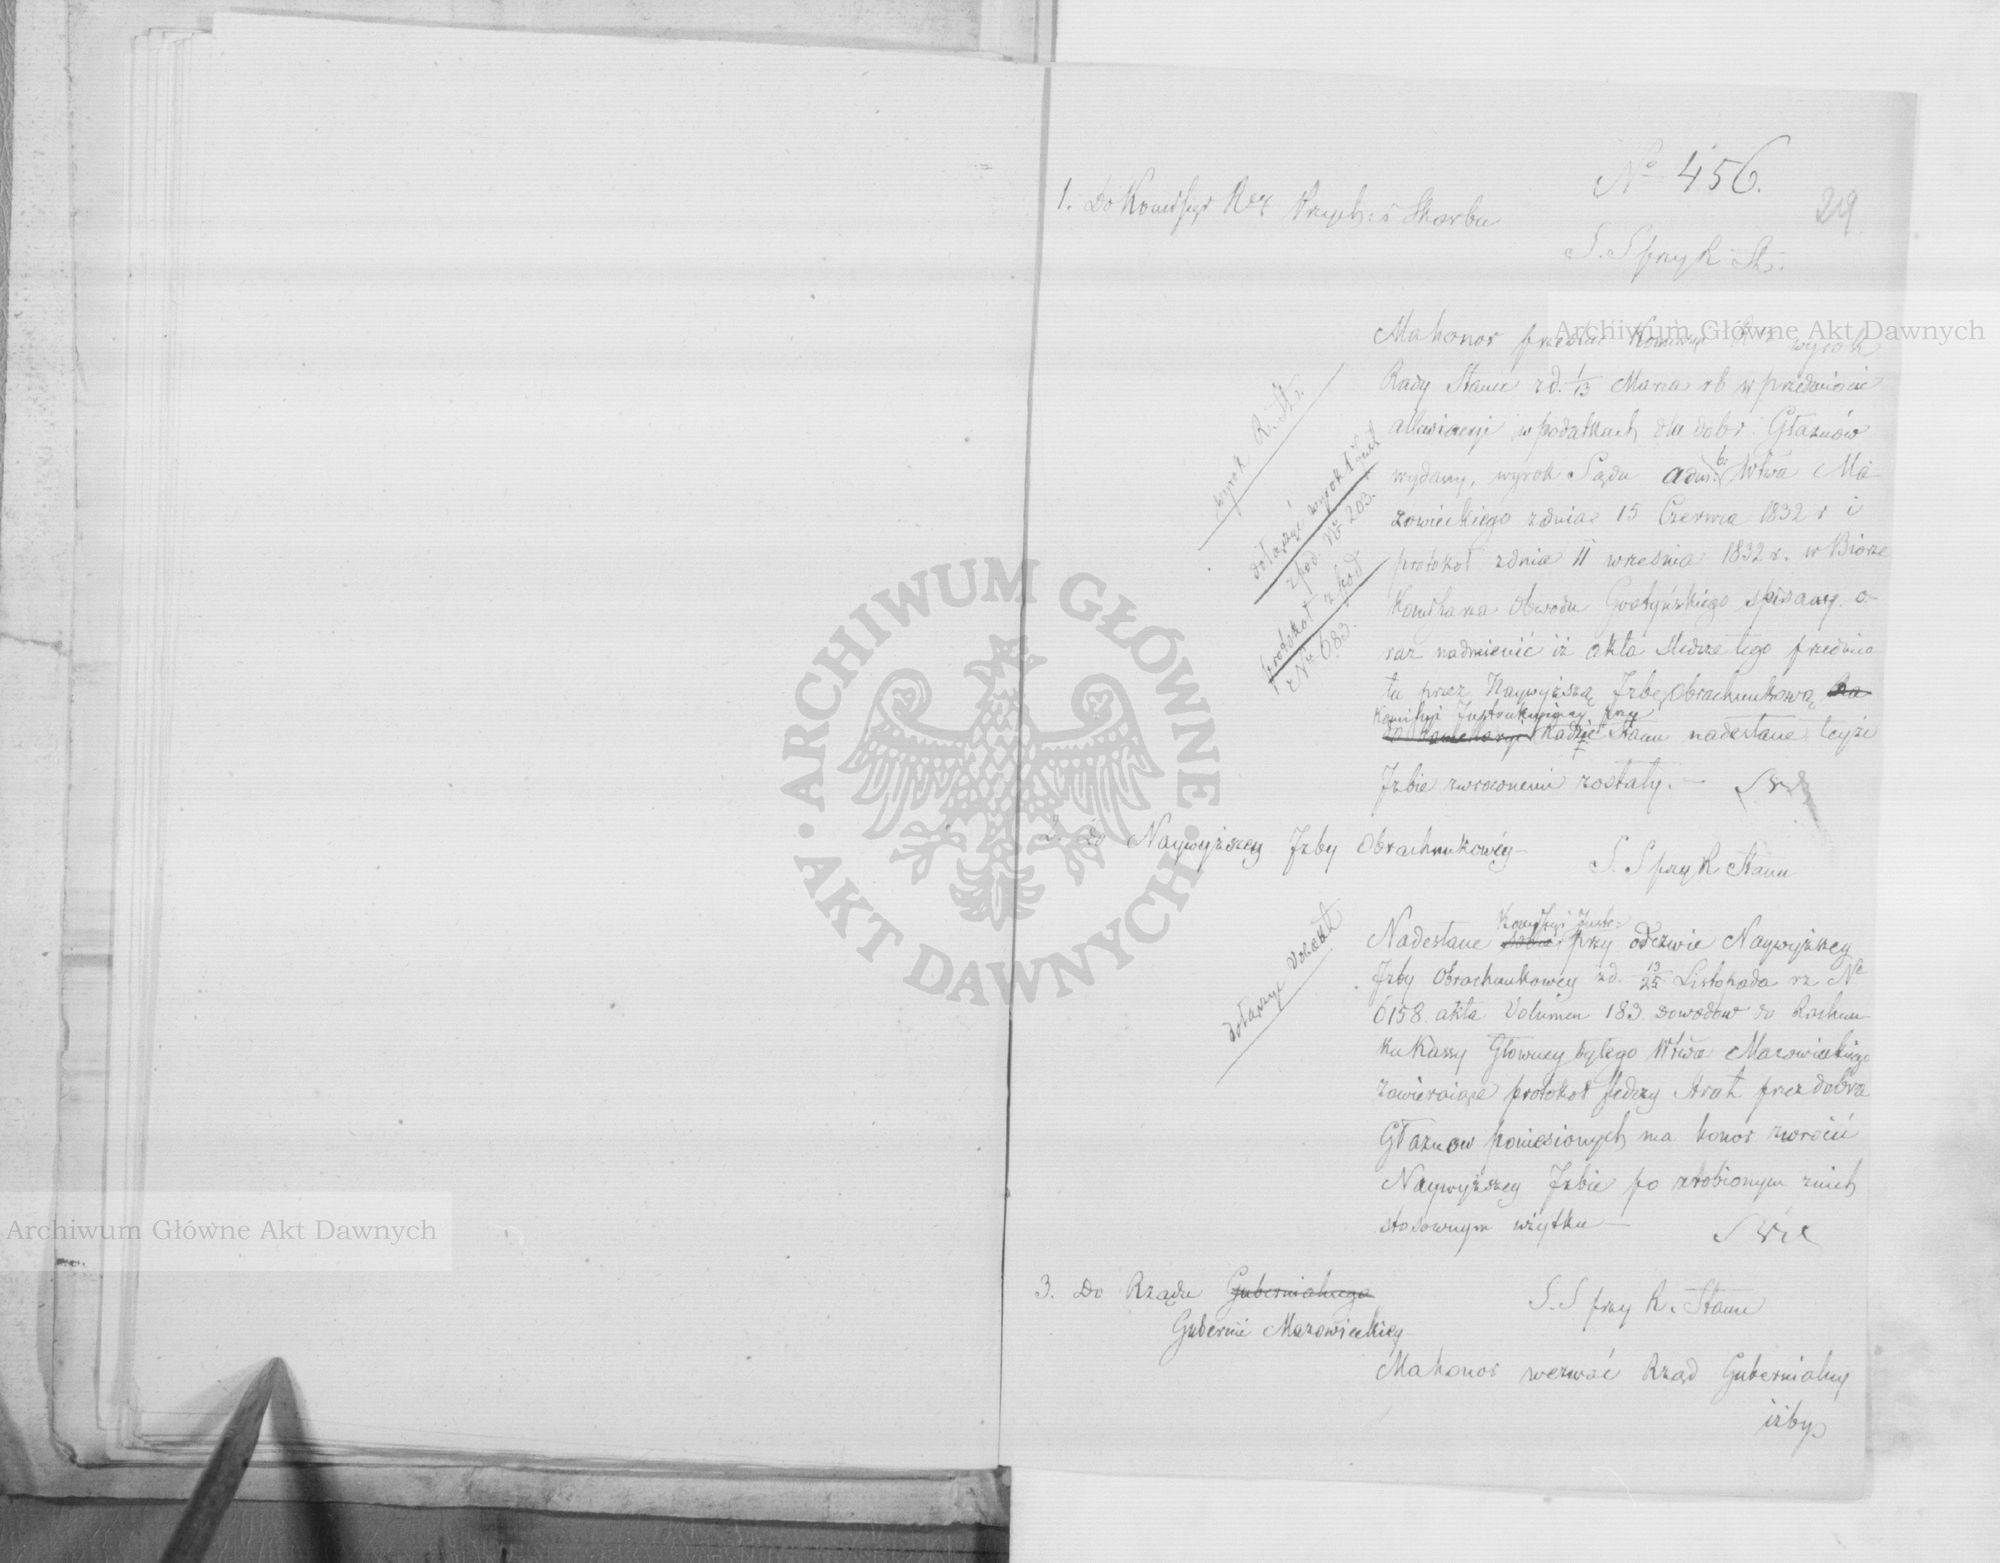 No 456.
219
1. Do Kommissyi Rz Przych: i Skarbu
S. S przy R St.
Ma honor przesłać Kommissyi Rz wyrok
Rady Stanu z d. 1/13 Marca rb w przedmiocie
allewiacyi w podatkach dla dobr Głaznów
wydany, wyrok Sądu adm: b: Wtwa Ma-
zowieckiego z dnia 15 Czerwca 1832 r i
protokoł z dnia 11 września 1832 r. w Biórze
Kommissarza Obwodu Gostyńskiego spisany o-
raz nadmienić iż akta śledcze tego przedmio
tu przez Naywyższą Izbę Obrachunkową
Kommissyi Instrukcyiney przy
Radzie Stanu nadesłane teyże
Izbie zwroconemi zostały. —
wyrok R. St.
dołączyć wyrok
z pod No 203.
protokoł z pod
No 683.
2. do Naywyższey Izby Obrachunkowéy
S. S przy R Stanu
Kommissyi Instr:
Nadesłane przy odezwie Naywyższey
Izby Obrachunkowey z d. 13/25 Listopada rz No
6158. akta Volumen 183 dowodow do Rachun
ku Kassy Głowney byłego Wtwa Mazowieckiego
zawieraiące protokoł śledczy strat przez dobra
Głaznow poniesionych ma honor zwrocić
Naywyższey Izbie po zrobionym z nich
stosownym użytku —
dołączyć Vol. akt
3. Do Rządu Gubernialnego
Gubernii Mazowieckiey
S. S przy R. Stanu
Ma honor wezwać Rząd Gubernialny
iżby
Archiwum Główne Akt Dawnych
Archiwum Główne Akt Dawnych
ARCHIWUM GŁÓWNE
AKT DAWNYCH